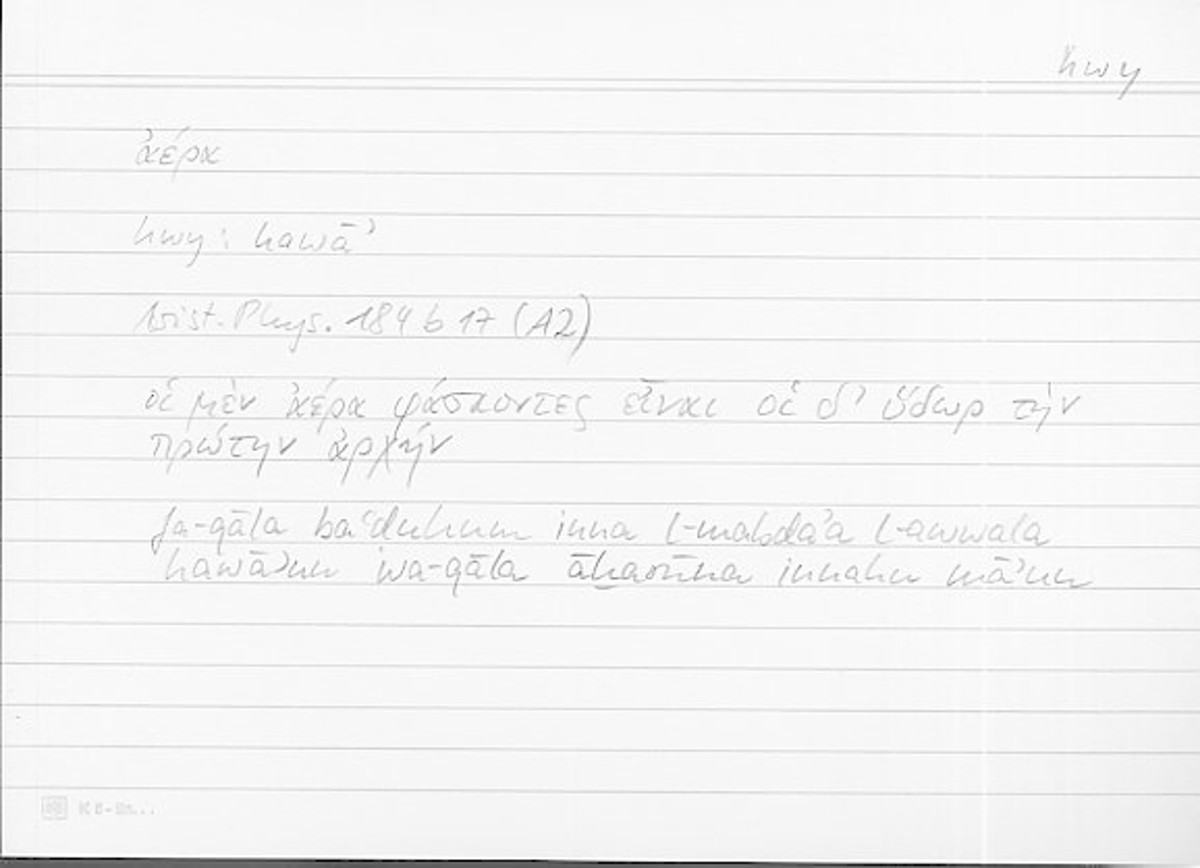 hwy
ἀέρα
hwy: hawāʾ
Arist. Phys. 184 b 17 (A2)
οἱ μὲν ἀέρα φάσκοντες εἶναι οἱ δ’ ὕδωρ τὴν
πρώτην ἀρχήν
fa-qāla baʿḍuhum inna l-mabdaʾa l-awwala
hawāʾun wa-qāla āḫarūna innahu māʾun